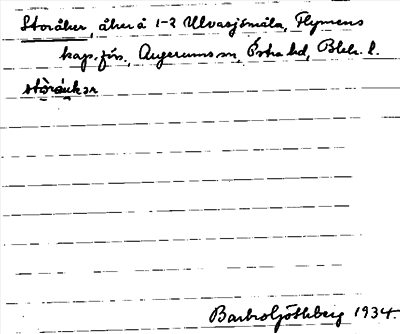 Storåker, åker å 1-2 Ulvasjömåla, Flymens
kap.förs., Augerums sn, Östra hd, Blek. l.
Barbro Göthberg 1934.